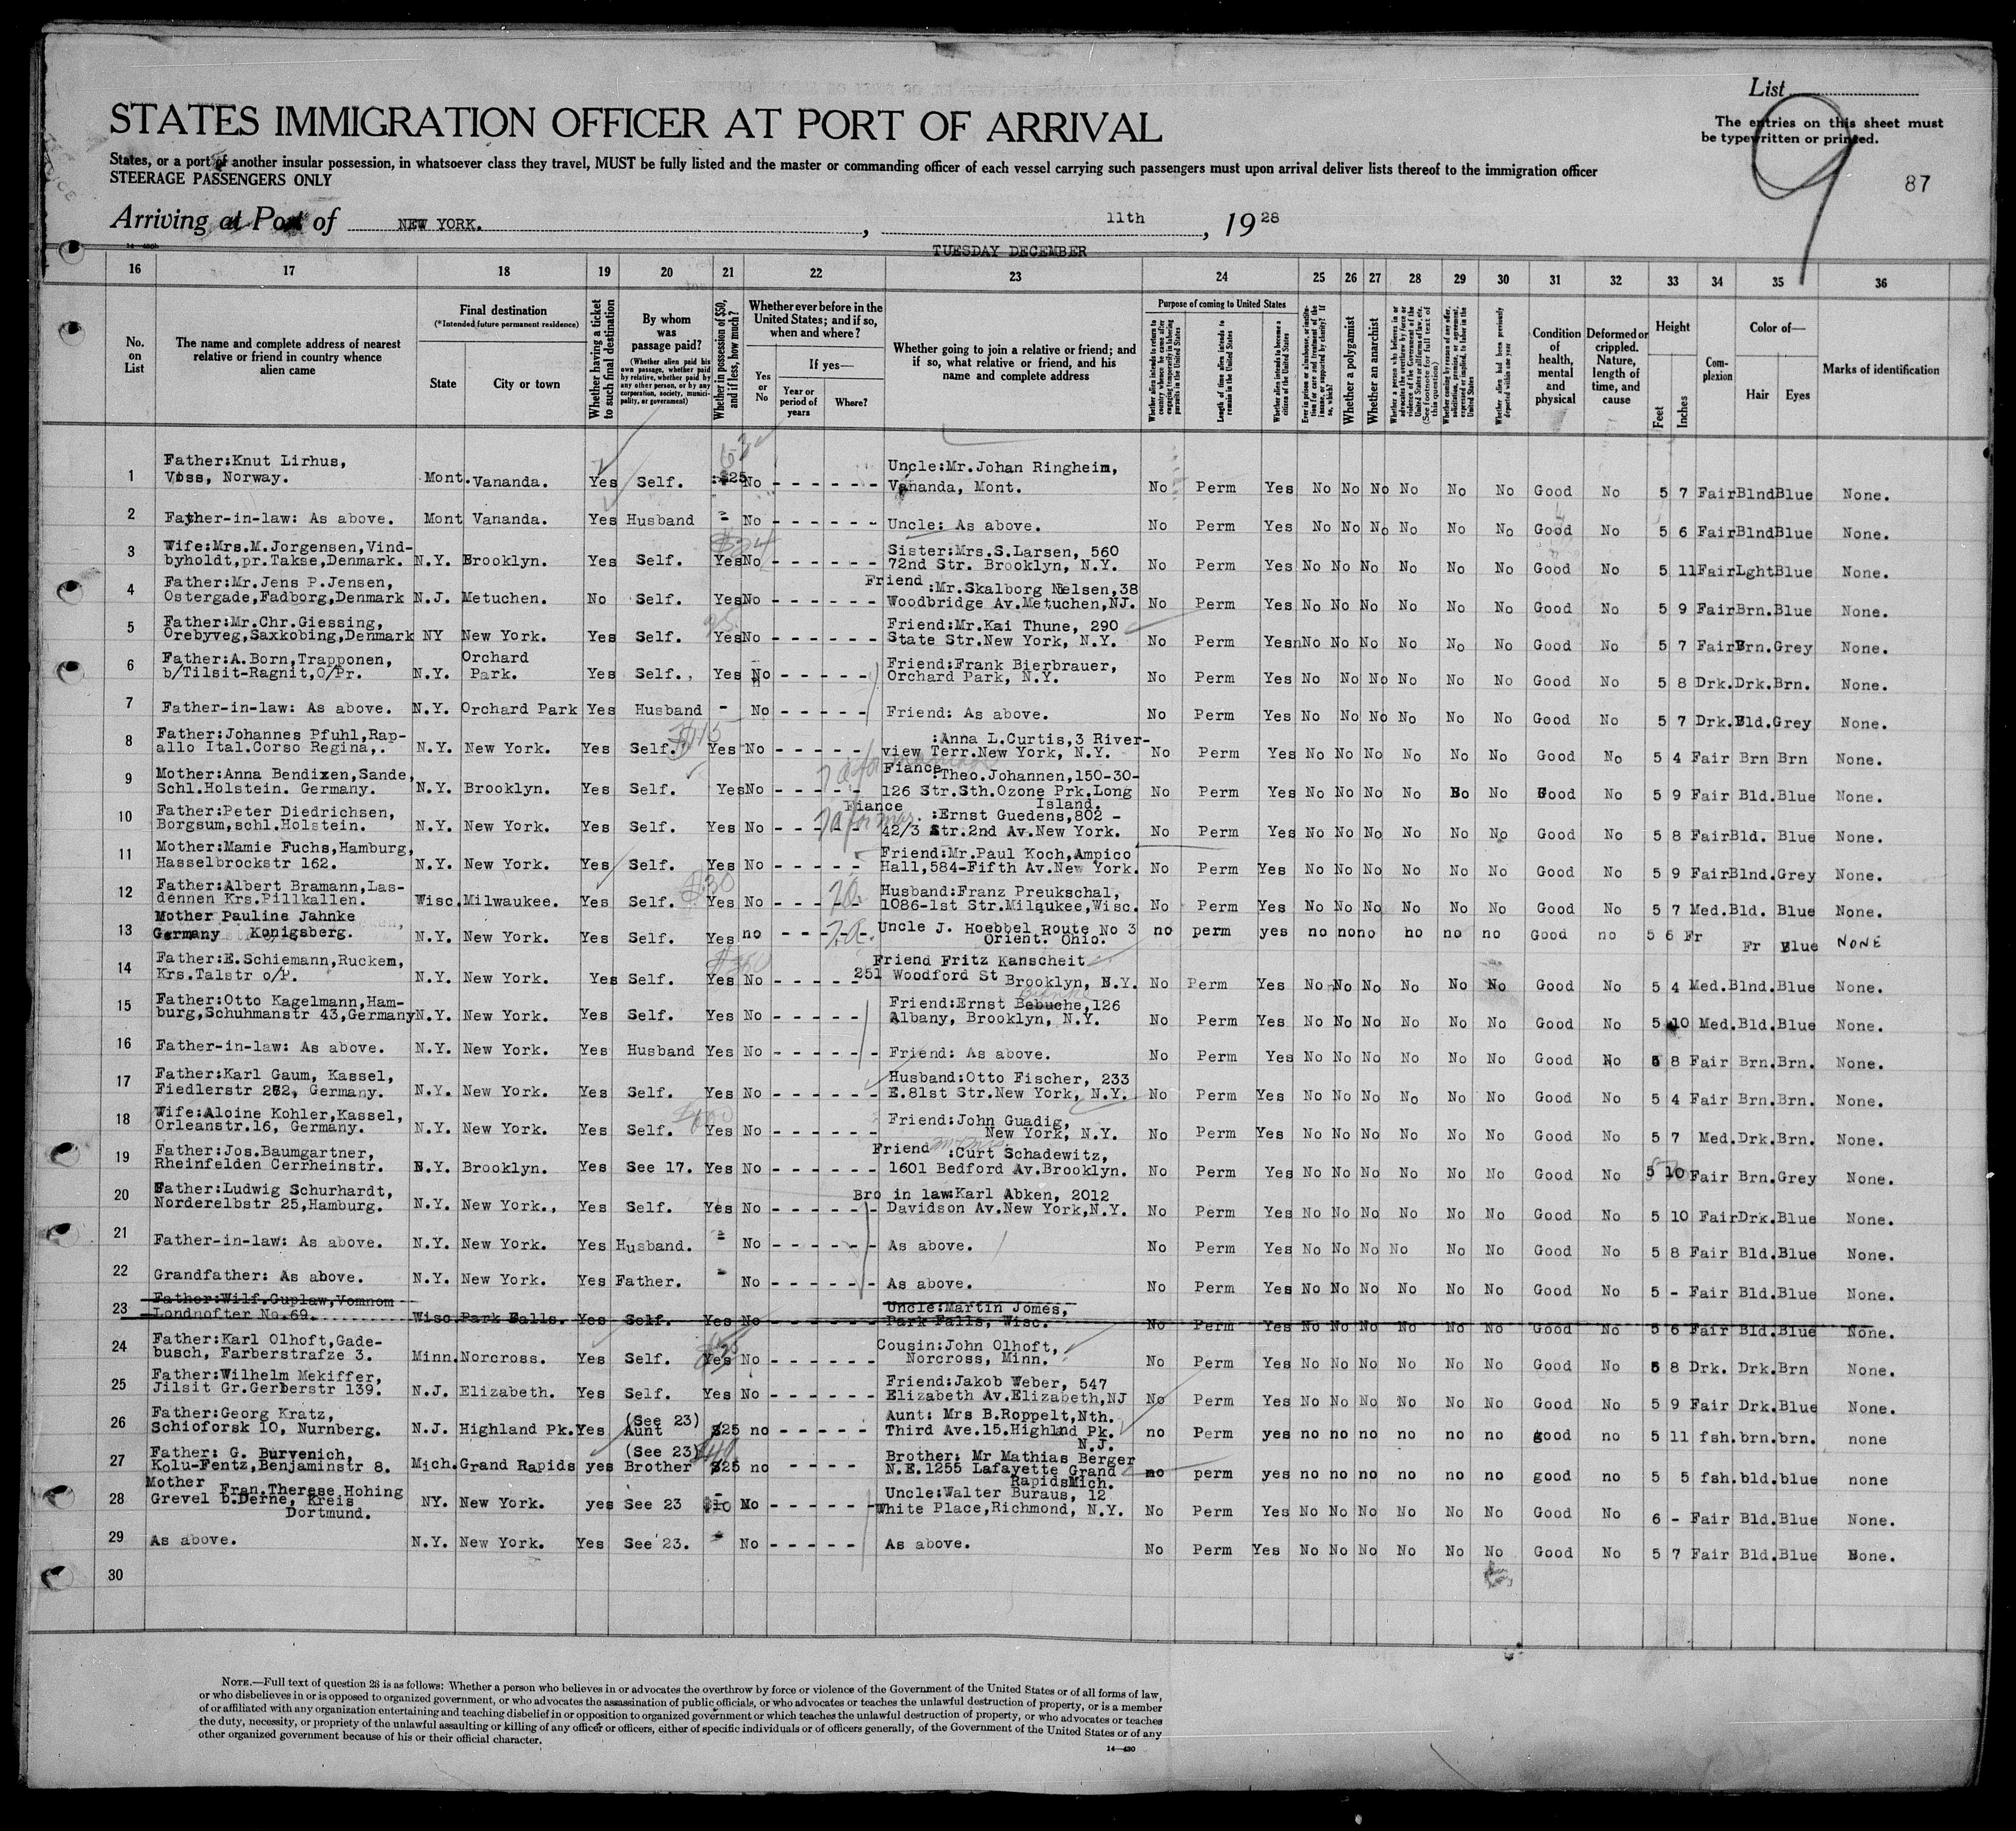 List
The entries on this sheet must
be typewritten or printed.
9
87
STATES IMMIGRATION OFFICER AT PORT OF ARRIVAL
States, or a port of another insular possession, in whatsoever class they travel, MUST be fully listed and the master or commanding officer of each vessel carrying such passengers must upon arrival deliver lists thereof to the immigration officer
STEERAGE PASSENGERS ONLY
Arriving at Port of NEW YORK. , 11th , 19 28
TUESDAY DECEMBER
16 17 18 19 20 21 22 23 24 25 26 27 28 29 30 31 32 33 34 35 36
No. on List
The name and complete address of nearest relative or friend in country whence alien came
Final destination
(*Intended future permanent residence)
State City or town
Whether having a ticket to such final destination
By whom was passage paid?
(Whether alien paid his own passage, whether paid by relative, whether paid by any other person, or by any corporation, society, municipality, or government)
Whether in possession of $50, and if less, how much?
Whether ever before in the United States; and if so, when and where?
Yes or No
If yes—
Year or period of years Where?
Whether going to join a relative or friend; and if so, what relative or friend, and his name and complete address
Purpose of coming to United States
Length of time alien intends to remain in the United States
Whether alien intends to become a citizen of the United States
Whether a polygamist
Whether an anarchist
Condition of health, mental and physical
Deformed or crippled. Nature, length of time, and cause
Height
Feet Inches
Complexion
Color of—
Hair Eyes
Marks of identification
1 Father:Knut Lirhus,
Voss, Norway. Mont. Vananda. Yes Self. $25 No Uncle:Mr.Johan Ringheim,
Vananda, Mont. No Perm Yes No No No No No No Good No 5 7 Fair Blnd Blue None.
2 Father-in-law: As above. Mont Vananda. Yes Husband - No Uncle: As above. No Perm Yes No No No No No No Good No 5 6 Fair Blnd Blue None.
3 Wife:Mrs.M.Jorgensen,Vind-
byholdt,pr.Takse,Denmark. N.Y. Brooklyn. Yes Self. Yes No Sister:Mrs.S.Larsen, 560
72nd Str. Brooklyn, N.Y. No Perm Yes No No No No No No Good No 5 11 Fair Lght Blue None.
4 Father:Mr.Jens P.Jensen,
Ostergade,Fadborg,Denmark N.J. Metuchen. No Self. Yes No Friend:Mr.Skalborg Nielsen,38
Woodbridge Av.Metuchen,NJ. No Perm Yes No No No No No No Good No 5 9 Fair Brn. Blue None.
5 Father:Mr.Chr.Giessing,
Orebyveg,Saxkobing,Denmark NY New York. Yes Self. Yes No Friend:Mr.Kai Thune, 290
State Str.New York, N.Y. No Perm Yes No No No No No No Good No 5 7 Fair Brn. Grey None.
6 Father:A.Born,Trapponen,
b/Tilsit-Ragnit,O/Pr. N.Y. Orchard Park. Yes Self., Yes No Friend:Frank Bierbrauer,
Orchard Park, N.Y. No Perm Yes No No No No No No Good No 5 8 Drk. Drk. Brn. None.
7 Father-in-law: As above. N.Y. Orchard Park Yes Husband - No Friend: As above. No Perm Yes No No No No No No Good No 5 7 Drk. Bld. Grey None.
8 Father:Johannes Pfuhl,Rap-
allo Ital.Corso Regina,. N.Y. New York. Yes Self. Yes No :Anna L.Curtis,3 River-
view Terr.New York, N.Y. No Perm Yes No No No No No No Good No 5 4 Fair Brn Brn None.
9 Mother:Anna Bendixen,Sande,
Schl.Holstein. Germany. N.Y. Brooklyn. Yes Self. Yes No Fiance:Theo.Johannen,150-30-
126 Str.Sth.Ozone Prk.Long
Island. No Perm Yes No No No No No No Good No 5 9 Fair Bld. Blue None.
10 Father:Peter Diedrichsen,
Borgsum,schl.Holstein. N.Y. New York. Yes Self. Yes No Fiance:Ernst Guedens,802 -
42/3 Str.2nd Av.New York. No Perm Yes No No No No No No Good No 5 8 Fair Bld. Blue None.
11 Mother:Mamie Fuchs,Hamburg,
Hasselbrockstr 162. N.Y. New York. Yes Self. Yes No Friend:Mr.Paul Koch,Ampico
Hall,584-Fifth Av.New York. No Perm Yes No No No No No No Good No 5 9 Fair Blnd. Grey None.
12 Father:Albert Bramann,Las-
dennen Krs.Pillkallen. Wisc. Milwaukee. Yes Self. $30 Yes No Husband:Franz Preukschal,
1086-1st Str.Milaukee,Wisc. No Perm Yes No No No No No No Good No 5 7 Med. Bld. Blue None.
13 Mother Pauline Jahnke
Germany Konigsberg. N.Y. New York. Yes Self. Yes no Uncle J. Hoebbel Route No 3
Orient. Ohio. no perm yes no no no no no no Good no 5 6 Fr Fr Blue NONE
14 Father:E.Schiemann,Rucken,
Krs.Talstr o/P. N.Y. New York. Yes Self. Yes No Friend Fritz Kanscheit
251 Woodford St Brooklyn, N.Y. No Perm Yes No No No No No No Good No 5 4 Med. Blnd. Blue None.
15 Father:Otto Kagelmann,Ham-
burg,Schuhmanstr 43,Germany N.Y. New York. Yes Self. Yes No Friend:Ernst Bebuche,126
Albany, Brooklyn, N.Y. No Perm Yes No No No No No No Good No 5 10 Med. Bld. Blue None.
16 Father-in-law: As above. N.Y. New York. Yes Husband Yes No Friend: As above. No Perm Yes No No No No No No Good No 5 8 Fair Brn. Brn. None.
17 Father:Karl Gaum, Kassel,
Fiedlerstr 272, Germany. N.Y. New York. Yes Self. Yes No Husband:Otto Fischer, 233
E.81st Str.New York, N.Y. No Perm Yes No No No No No No Good No 5 4 Fair Brn. Brn. None.
18 Wife:Aloine Kohler,Kassel,
Orleanstr.16, Germany. N.Y. New York. Yes Self. Yes No Friend:John Guadig,
New York, N.Y. No Perm Yes No No No No No No Good No 5 7 Med. Drk. Brn. None.
19 Father:Jos.Baumgartner,
Rheinfelden Cerrheinstr. N.Y. Brooklyn. Yes See 17. Yes No Friend:Curt Schadewitz,
1601 Bedford Av.Brooklyn. No Perm Yes No No No No No No Good No 5 10 Fair Brn. Grey None.
20 Father:Ludwig Schurhardt,
Norderelbstr 25,Hamburg. N.Y. New York., Yes Self. Yes No Bro in law:Karl Abken, 2012
Davidson Av.New York,N.Y. No Perm Yes No No No No No No Good No 5 10 Fair Drk. Blue None.
21 Father-in-law: As above. N.Y. New York. Yes Husband. - No As above. No Perm Yes No No No No No No Good No 5 8 Fair Bld. Blue None.
22 Grandfather: As above. N.Y. New York. Yes Father. - No As above. No Perm Yes No No No No No No Good No 5 - Fair Bld. Blue None.
23 Father:Wilf.Guplaw,Vomnom
Londnofter No.69. Wisc. Park Falls. Yes Self. Yes No Uncle:Martin Jomes,
Park Falls, Wisc. No Perm Yes No No No No No No Good No 5 6 Fair Bld. Blue None.
24 Father:Karl Olhoft,Gade-
busch, Farberstrafze 3. Minn. Norcross. Yes Self. Yes No Cousin:John Olhoft,
Norcross, Minn. No Perm Yes No No No No No No Good No 5 8 Drk. Drk. Brn None.
25 Father:Wilhelm Mekiffer,
Jilsit Gr.Gerberstr 139. N.J. Elizabeth. Yes Self. Yes No Friend:Jakob Weber, 547
Elizabeth Av.Elizabeth,NJ No Perm Yes No No No No No No Good No 5 9 Fair Drk. Blue None.
26 Father:Georg Kratz,
Schioforsk 10, Nurnberg. N.J. Highland Pk. Yes (See 23) Aunt $25 no Aunt: Mrs B.Roppelt,Nth.
Third Ave.15.Highland Pk.
N.J. no Perm yes no no no no no no good no 5 11 fsh. brn. brn. none
27 Father: G. Buryenich,
Kolu-Fentz,Benjaminstr 8. Mich. Grand Rapids yes (See 23) Brother $25 no Brother: Mr Mathias Berger
N.E.1255 Lafayette Grand
Rapids Mich. no perm yes no no no no no no good no 5 5 fsh. bld. blue none
28 Mother Fran.Therese Hohing
Grevel b.Derne, Kreis
Dortmund. NY. New York. yes See 23 $10 No Uncle:Walter Buraus, 12
White Place,Richmond, N.Y. No Perm Yes No No No No No No Good No 6 - Fair Bld. Blue None.
29 As above. N.Y. New York. Yes See 23. - No As above. No Perm Yes No No No No No No Good No 5 7 Fair Bld. Blue None.
30
NOTE.—Full text of question 28 is as follows: Whether a person who believes in or advocates the overthrow by force or violence of the Government of the United States or of all forms of law,
or who disbelieves in or is opposed to organized government, or who advocates the assassination of public officials, or who advocates or teaches the unlawful destruction of property, or is a member
of or affiliated with any organization entertaining and teaching disbelief in or opposition to organized government or which teaches the unlawful destruction of property, or who advocates or teaches
the duty, necessity, or propriety of the unlawful assaulting or killing of any officer or officers, either of specific individuals or of officers generally, of the Government of the United States or of any
other organized government because of his or their official character.
14—430